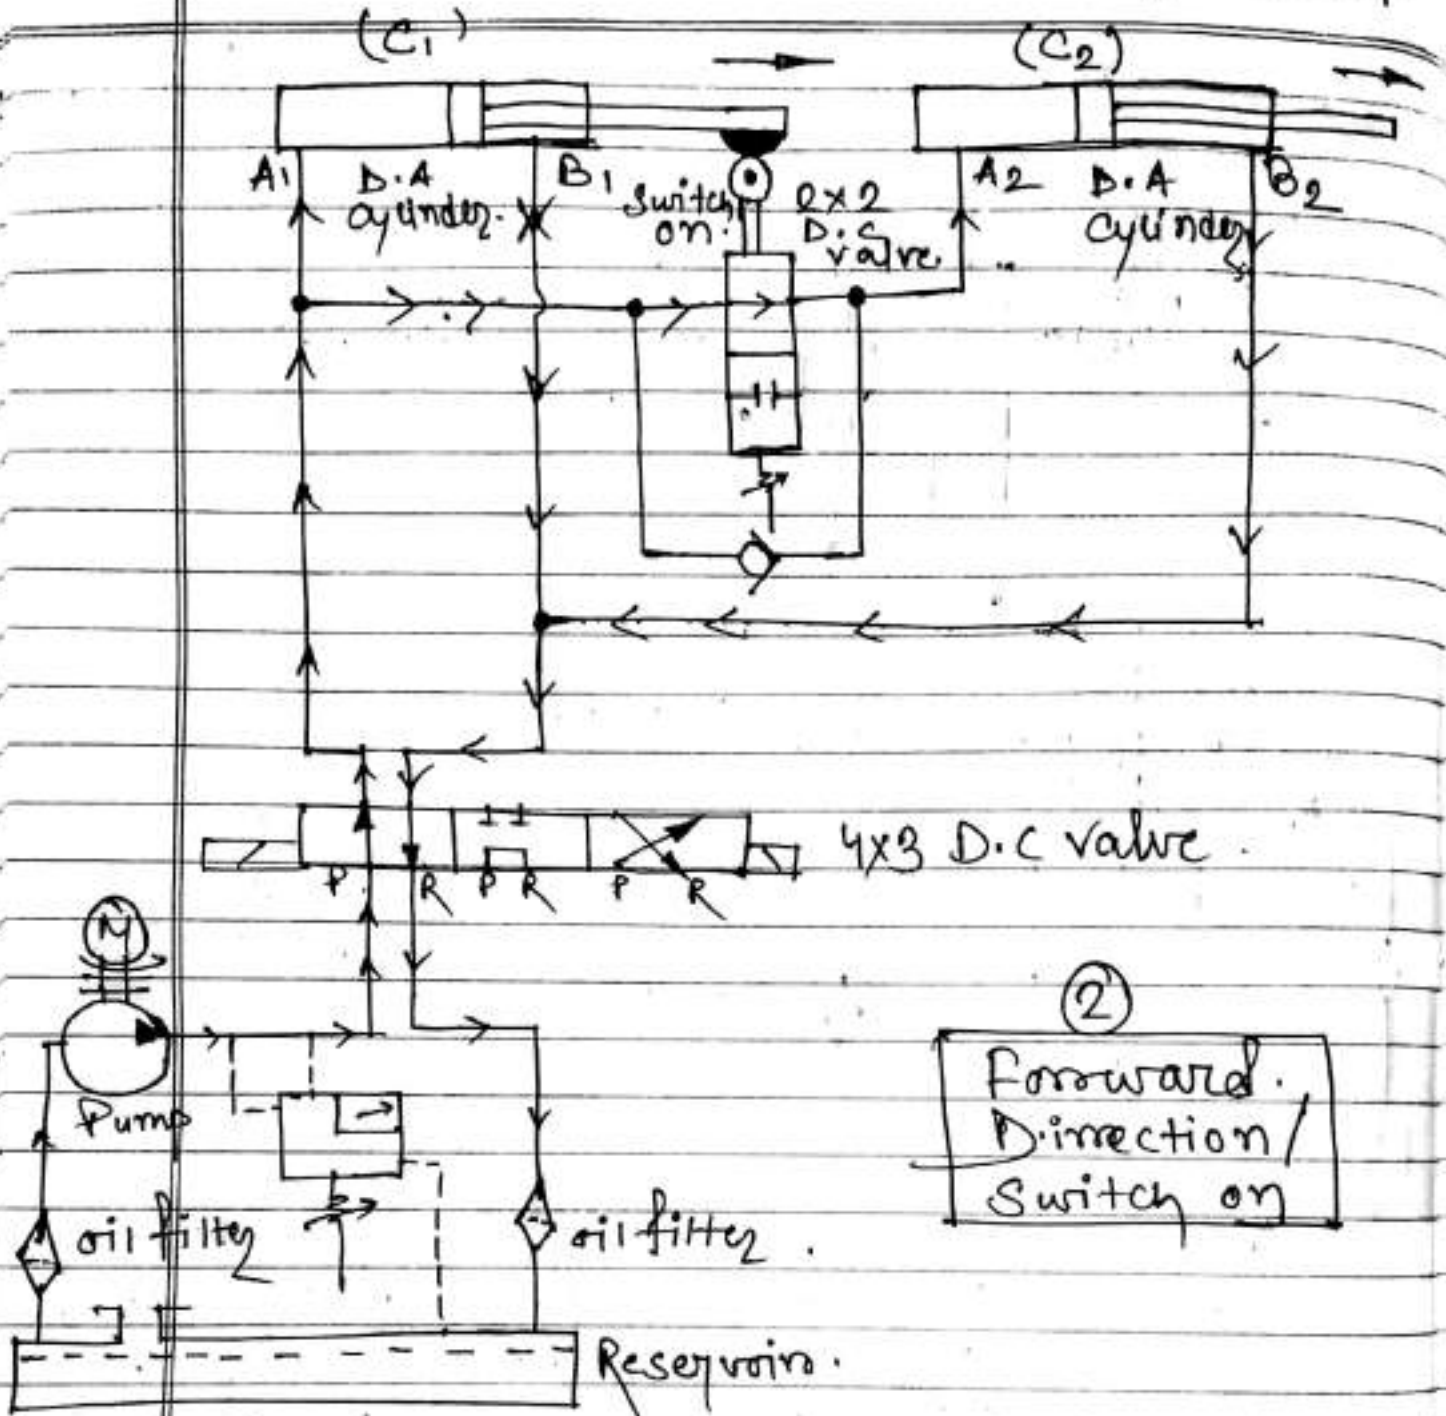 (C1)
(C2)
A1
D.A
cylinder.
B1
Switch
on.
2x2
D.C
valve.
A2
D.A
cylinder
B2
4x3 D.C valve.
P R P R P R
M
Pump
oil filter
oil filter.
Reservoir.
2
Forward.
Direction/
Switch on